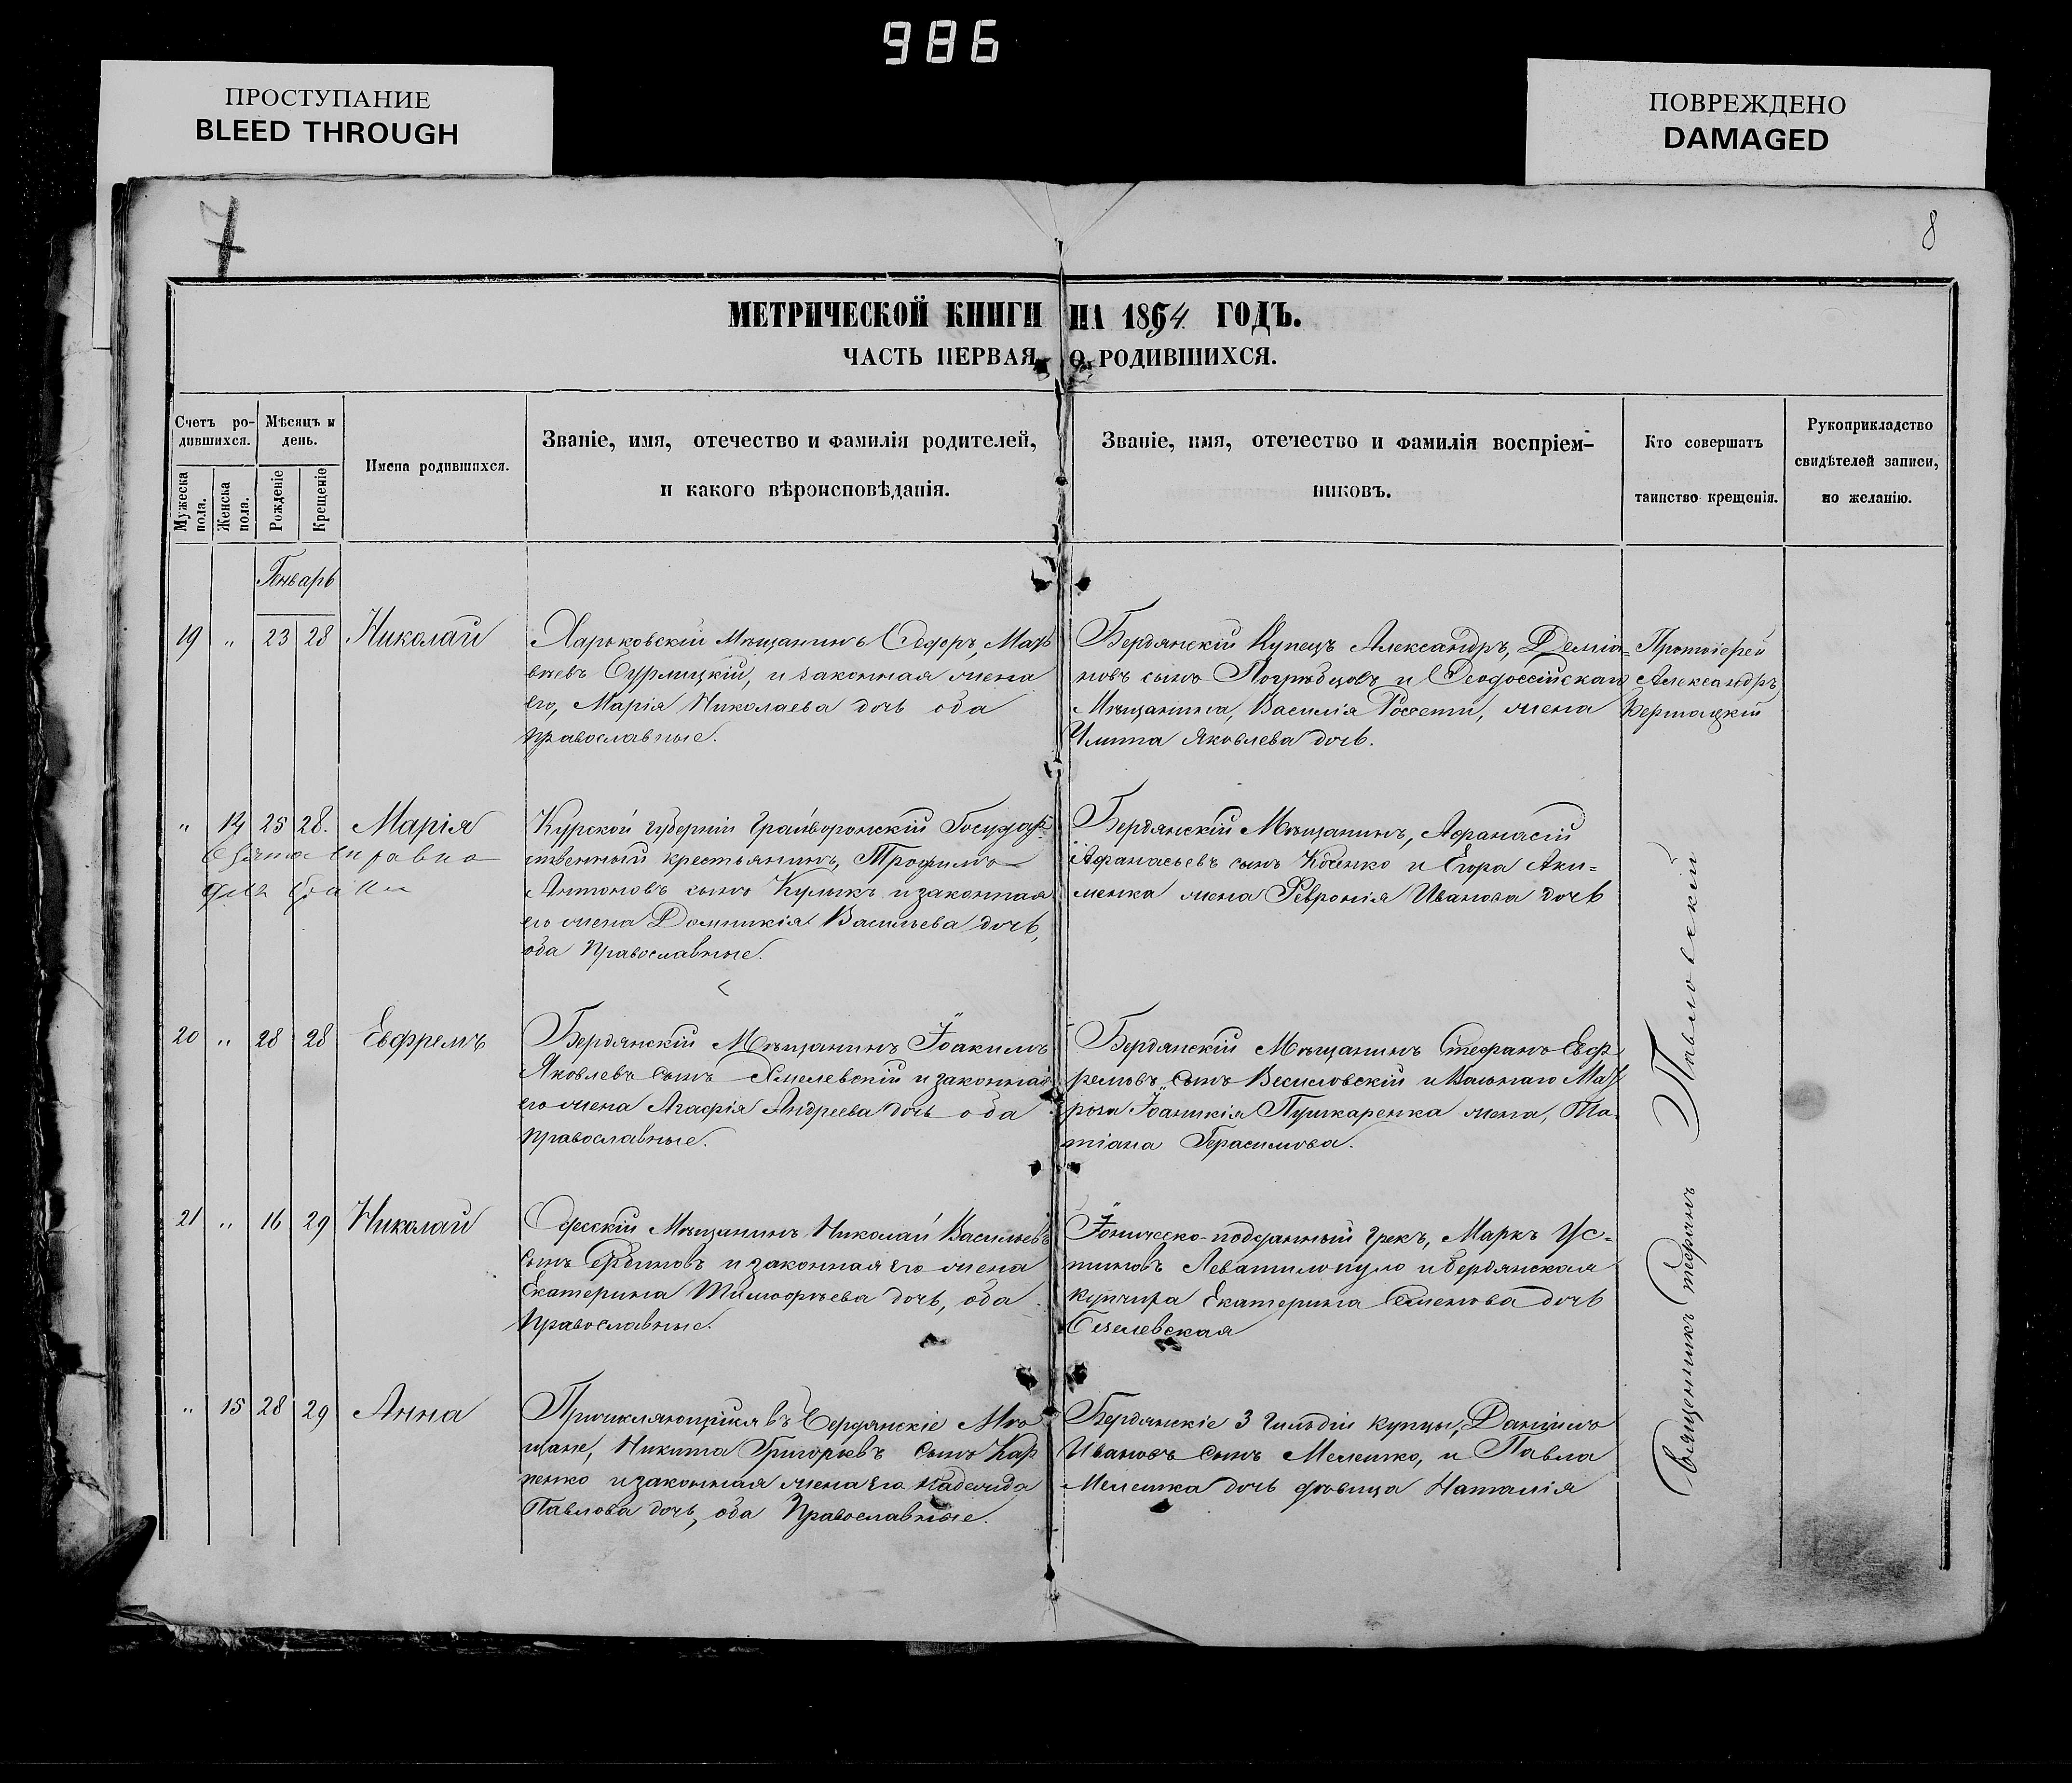 986
ПРОСТУПАНИЕ
BLEED THROUGH
ПОВРЕЖДЕНО
DAMAGED
7
8
МЕТРИЧЕСКОЙ КНИГИ НА 1864 ГОДЪ.
ЧАСТЬ ПЕРВАЯ, О РОДИВШИХСЯ.
Счетъ ро-
дившихся.
Мужеска пола.
Женска пола.
Мѣсяцъ и
день.
Рожденіе
Крещеніе
Имена родившихся.
Званіе, имя, отечество и фамилія родителей,
и какого вѣроисповѣданія.
Званіе, имя, отечество и фамилія воспріем-
никовъ.
Кто совершатъ
таинство крещенія.
Рукоприкладство
свидѣтелей записи,
по желанію.
Генварь
19 " 23 28 Николай
Харьковскій Мѣщанинъ Ѳедоръ, Маѳ
вѣевъ и законная жена
его, Марія Николаева дочь оба
православные.
Бердянскій Купецъ Александръ, Деміа=
новъ сынъ Погрѣбцовъ и Ѳеодоссійскаго
Мѣщанина, Василія жена
Улита Яковлева дочь.
Протоіерей
Александръ
" 14 25 28. Марія
справка
для
Курской губерніи Грайворонскій Государ
ственный крестьянинъ, Трофимъ
Антоновъ сынъ Кулыкъ и законная
его жена Домникія Васильева дочь,
оба Православные.
Бердянскій Мѣщанинъ, Афанасій
Афанасьевъ сынъ Косенко и Егора Аки=
менка жена Февронія Иванова дочь
20 " 28 28 Евфремъ
Бердянскій Мѣщанинъ Іоакимъ
Яковлевъ сынъ Хмелевскій и законная
его жена Агафія Андреева дочь оба
православные.
Бердянскій Мѣщанинъ Стефанъ Евф
ремовъ сынъ Веселовскій и Вольнаго Мат
роса Іоаникія Пушкаренка жена, Та-
тіана Герасимова.
21 " 16 29 Николай
Одесскій Мѣщанинъ Николай Васильевъ
сынъ и законная его жена
Екатерина Тимофѣева дочь, оба
Православные.
Іоническо-подданный Грекъ, Маркъ Ус=
тиновъ и Бердянская
купчиха Екатерина Семенова дочь
" 15 28 29 Анна
Причисляющіися въ Бердянскіе Мѣ
щане, Никита Григорьевъ сынъ Кар
пенко и законная жена его Надежда
Павлова дочь, оба Православные.
Бердянскіе 3 Гильдіи купцы, Даніилъ
Ивановъ сынъ Мелешко, и Павла
Мелешка дочь дѣвица Наталія
Священникъ Стефанъ Павловскій